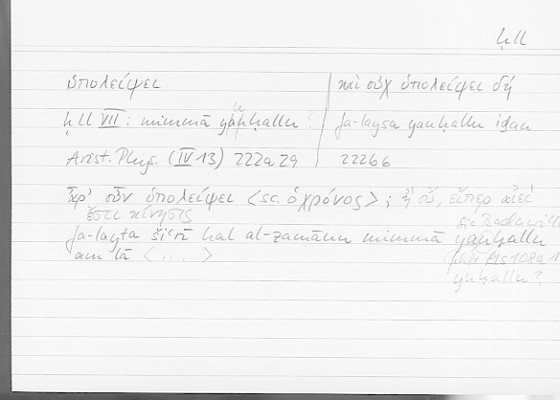 ḥll
ὑπολείψει | καὶ οὐχ ὑπολείψει δή
ḥll VII : mimmā yanḥallu ? | fa-laysa yanḥallu iḏan
Arist. Phys. (IV 13) 222a29 | 222b6
ἆρ' οὖν ὑπολείψει <sc. ὁ χρόνος> ; ἢ οὔ, εἴπερ αἰεὶ
ἔστι κίνησις
fa-layta šiʿrī hal al-zamānu mimmā yanḥallu
am lā <...>
sic Badawī
Hs 108a1
yuḥallu ?